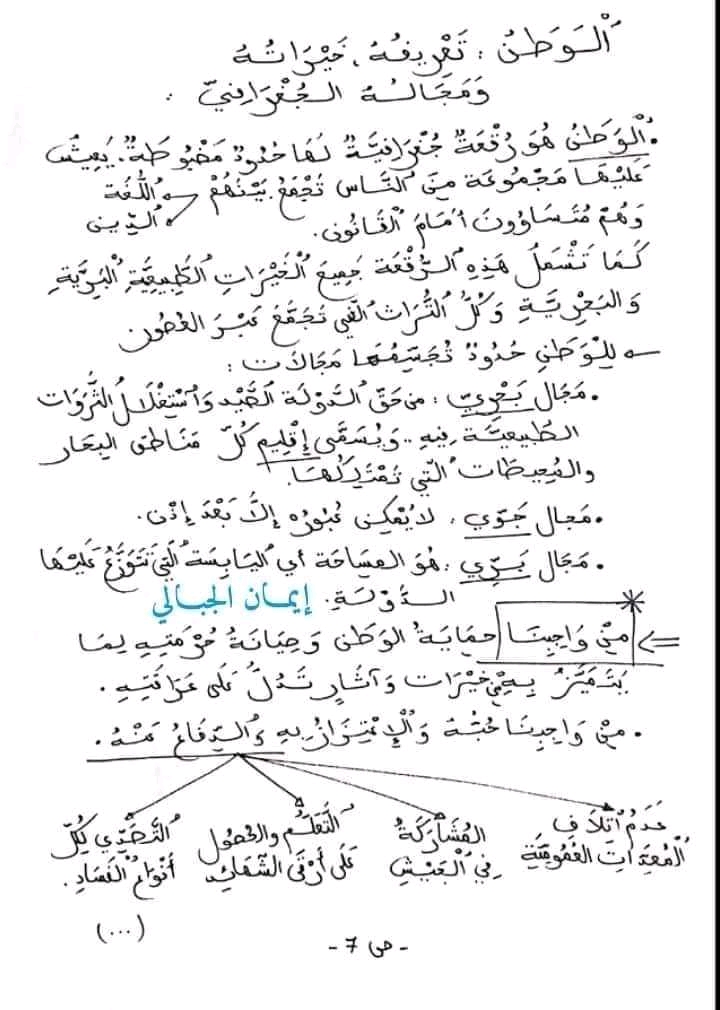 الْوَطَنُ : تَعْرِيفُهُ ، خَيْرَاتُهُ
وَمَجَالُهُ الجُغْرَافِيّ :
• الْوَطَنُ هُوَ رُقْعَةٌ جُغْرَافِيَّةٌ لَهَا حُدُودٌ مَضْبُوطَةٌ. يَعِيشُ
عَلَيْهَا مَجْمُوعَة مِنَ النَّاس تُجْمَعُ بَيْنَهُمْ اللُّغَة
الدِّين
وَهُمْ مُتَسَاوُونَ أَمَامَ الْقَانُونِ.
كَمَا تَشْمَلُ هَذِهِ الرُّقْعَة جَمِيعَ الْخَيْرَاتِ الطَّبِيعِيَّةِ الْبَرِّيَّةِ
وَالبَحْرِيَّةِ وَكُلُّ التُّرَاث الّتي تُجَمَّعُ عَبْرَ العُصُون
لِلْوَطَنِ حُدُودٌ تُجَسِّمُهَا مَجَالَات :
• مَجَال بَحْرِيّ : مِن حَقّ الدَّوْلَة الصَّيْد وَاسْتِغْلَالُ الثَّرَوَات
الطَّبِيعِيَّة فِيهِ .. وَيُسَمَّى إِقْلِيم كُلّ مَنَاطِق البِحَار
والمُحِيطَات الّتِي تَمْتَلِكُهَا.
• مَجال جَوّي : لَا يُمْكِن عُبُورُهُ إِلَّا بَعْدَ إِذْن.
• مَجَال بَرِّي : هُوَ المِسَاحَة أي اليَابِسَة الّتِي تَتَوَزَّعُ عَلَيْهَا
الدَّوْلَةِ.
إيمان الجبالي
مِنْ وَاجِبِنَا حِمَايَةُ الوَطَن وَصِيَانَةُ حُرْمَتِهِ لِمَا
يَتَمَيَّزُ بِهِ مِنْ خَيْرَات وَآثَارٍ تَدُلّ عَلى عَرَاقَتِهِ .
• مِنْ وَاجِبِنَا حُبُّهُ وَالْإِعْتِزَازُ بِهِ وَالدِّفَاعُ عَنْهُ .
عَدَمُ اتْلَافِ المُشَارَكَةُ التَّعَلُّمُ والحُصُول التَّصَدِّي لِكُلّ
الْمُعِدَّاتِ العُمُومِيَّةِ فِي الْعَيْشِ عَلَى أَرْقَى الشَّهَائِد أَنْوَاع الْفَسَادِ.
(...)
- ص 7 -